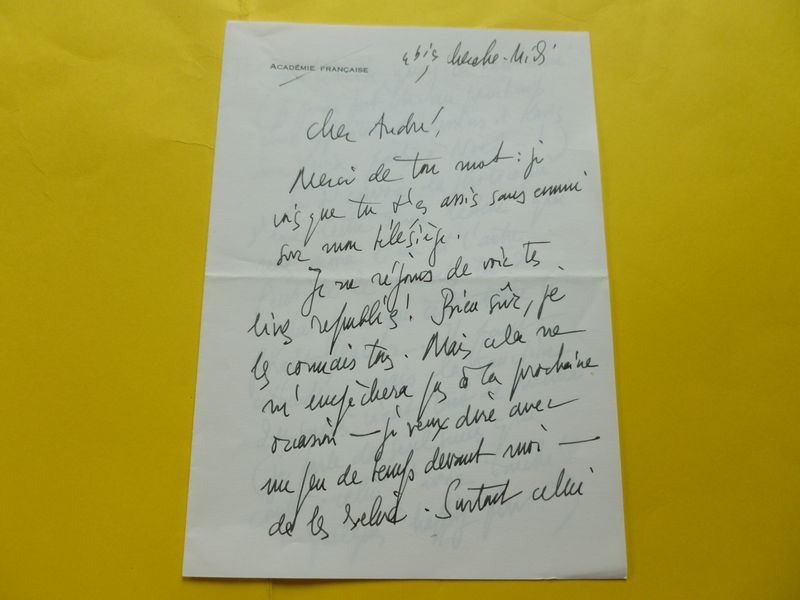 ACADÉMIE FRANÇAISE
4 bis, Cherche-Midi
Cher André,
Merci de ton mot : je
vois que tu t'es assis sans ennui
sur mon télésiège.
Je me réjouis de voir tes
livres republiés ! Bien sûr, je
les connais tous. Mais cela ne
m'empêchera pas à la prochaine
occasion — je veux dire avec
un peu de temps devant moi —
de les relire. Surtout celui